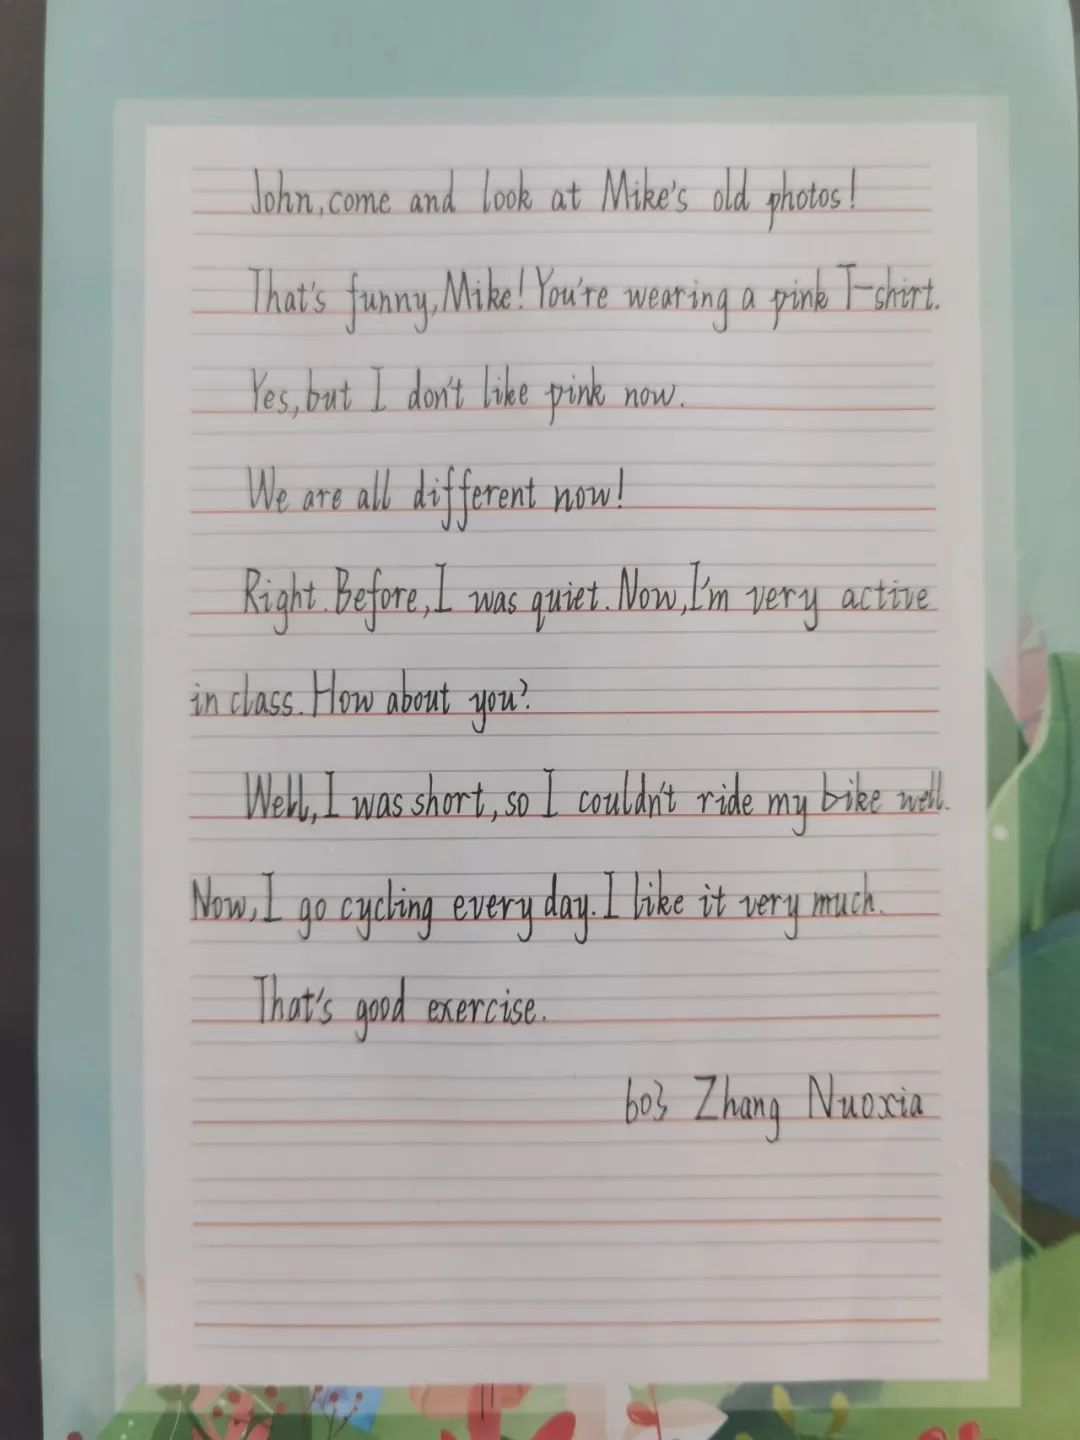 John, come and look at Mike's old photos!
That's funny, Mike! You're wearing a pink T-shirt.
Yes, but I don't like pink now.
We are all different now!
Right. Before, I was quiet. Now, I'm very active
in class. How about you?
Well, I was short, so I couldn't ride my bike well.
Now, I go cycling every day. I like it very much.
That's good exercise.
603 Zhang Nuoxia